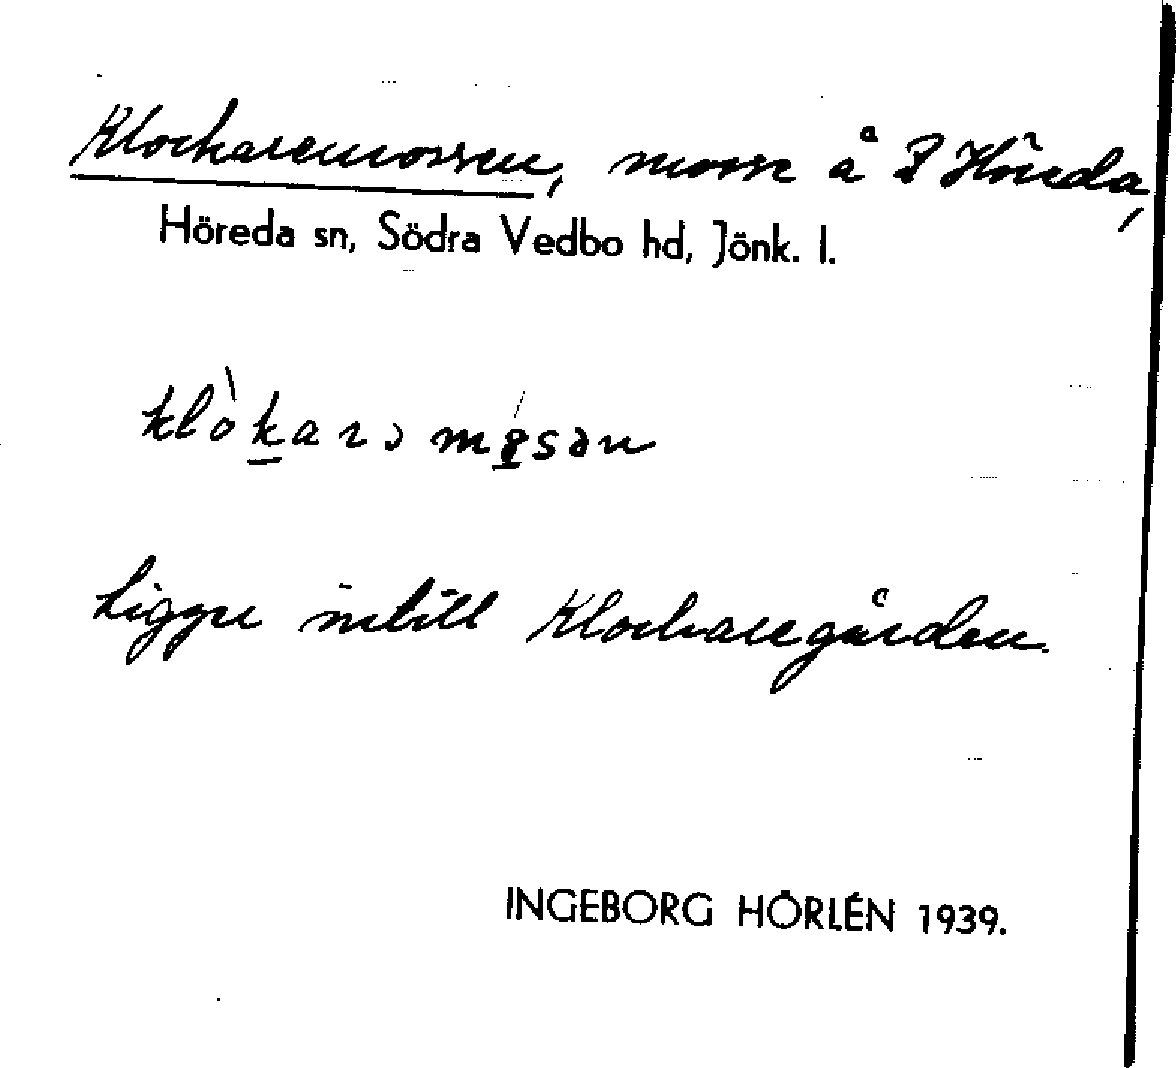 Klockaremossen, mosse å Höreda,
Höreda sn, Södra Vedbo hd, Jönk. l.
Ligger intill Klockaregården.
INGEBORG HÖRLÉN 1939.